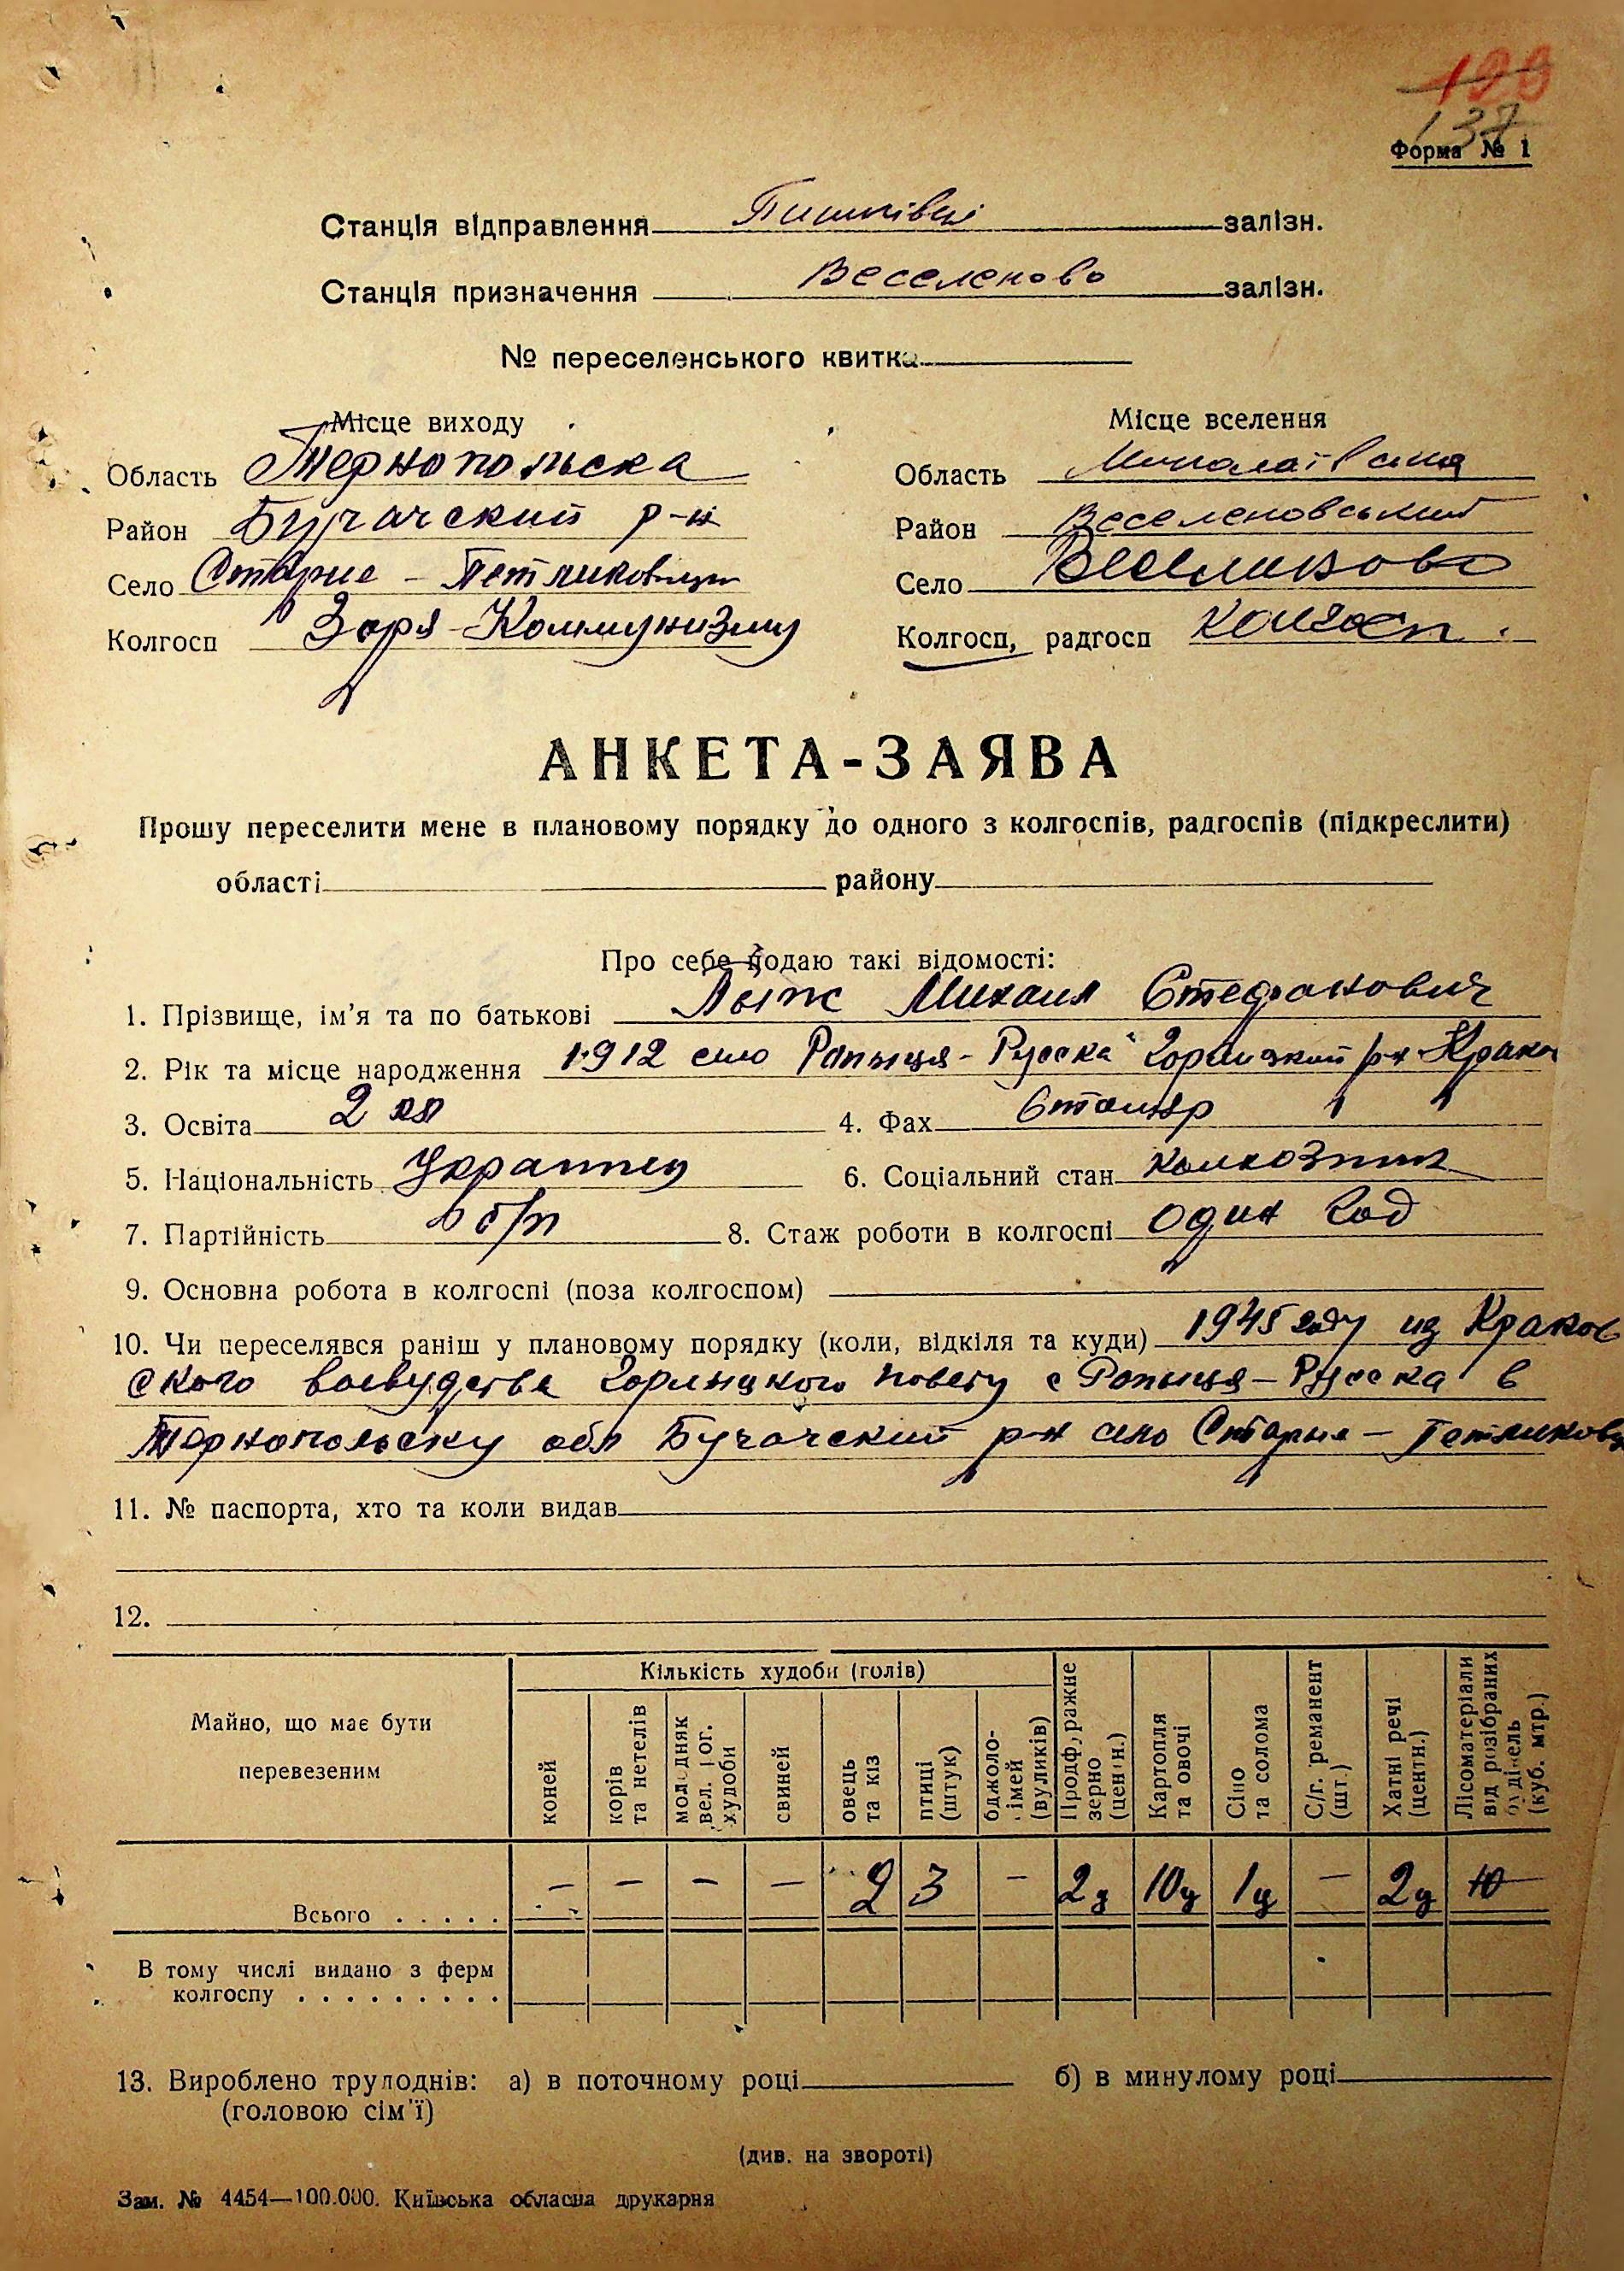 199
137
Форма № 1
Станція відправлення Пишківці залізн.
Станція призначення Веселеново залізн.
№ переселенського квитка
Місце виходу Місце вселення
Область Тернопольска Область Миколаївська
Район Бучачский р-н Район Веселеновський
Село Старие - Петликовци Село Веселиново
Колгосп Заря - Коммунизму Колгосп, радгосп колгосп.
АНКЕТА-ЗАЯВА
Прошу переселити мене в плановому порядку до одного з колгоспів, радгоспів (підкреслити)
області району
Про себе подаю такі відомості:
1. Прізвище, ім’я та по батькові Михаил Стефанович
2. Рік та місце народження 1912 село Ропыця - Русска Горлицкий р-н Краков
3. Освіта 2 кл 4. Фах Столяр
5. Національність Украинец 6. Соціальний стан колхозник
7. Партійність б/п 8. Стаж роботи в колгоспі один год
9. Основна робота в колгоспі (поза колгоспом)
10. Чи переселявся раніш у плановому порядку (коли, відкіля та куди) 1945 году из Краков
ского воевудства Горлицкого повету с Ропыця - Русска в
Тернопольску обл Бучачский р-н село Старые - Петликовц
11. № паспорта, хто та коли видав
12.
Майно, що має бути перевезеним Кількість худоби (голів)
коней корів та нетелів молодняк вел. рог. худоби свиней овець та кіз птиці (штук) бджоло-сімей (вуликів) Продф,ражне зерно (центн.) Картопля та овочі Сіно та солома С/г. реманент (шт.) Хатні речі (центн.) Лісоматеріали від розібраних будівель (куб. мтр.)
Всього . . . . . – – – – 2 3 – 2ц 10ц 1ц – 2ц 10
В тому числі видано з ферм
колгоспу . . . . . . . . .
13. Вироблено трудоднів: а) в поточному році б) в минулому році
(головою сім'ї)
(див. на звороті)
Зам. № 4454—100.000. Київська обласна друкарня